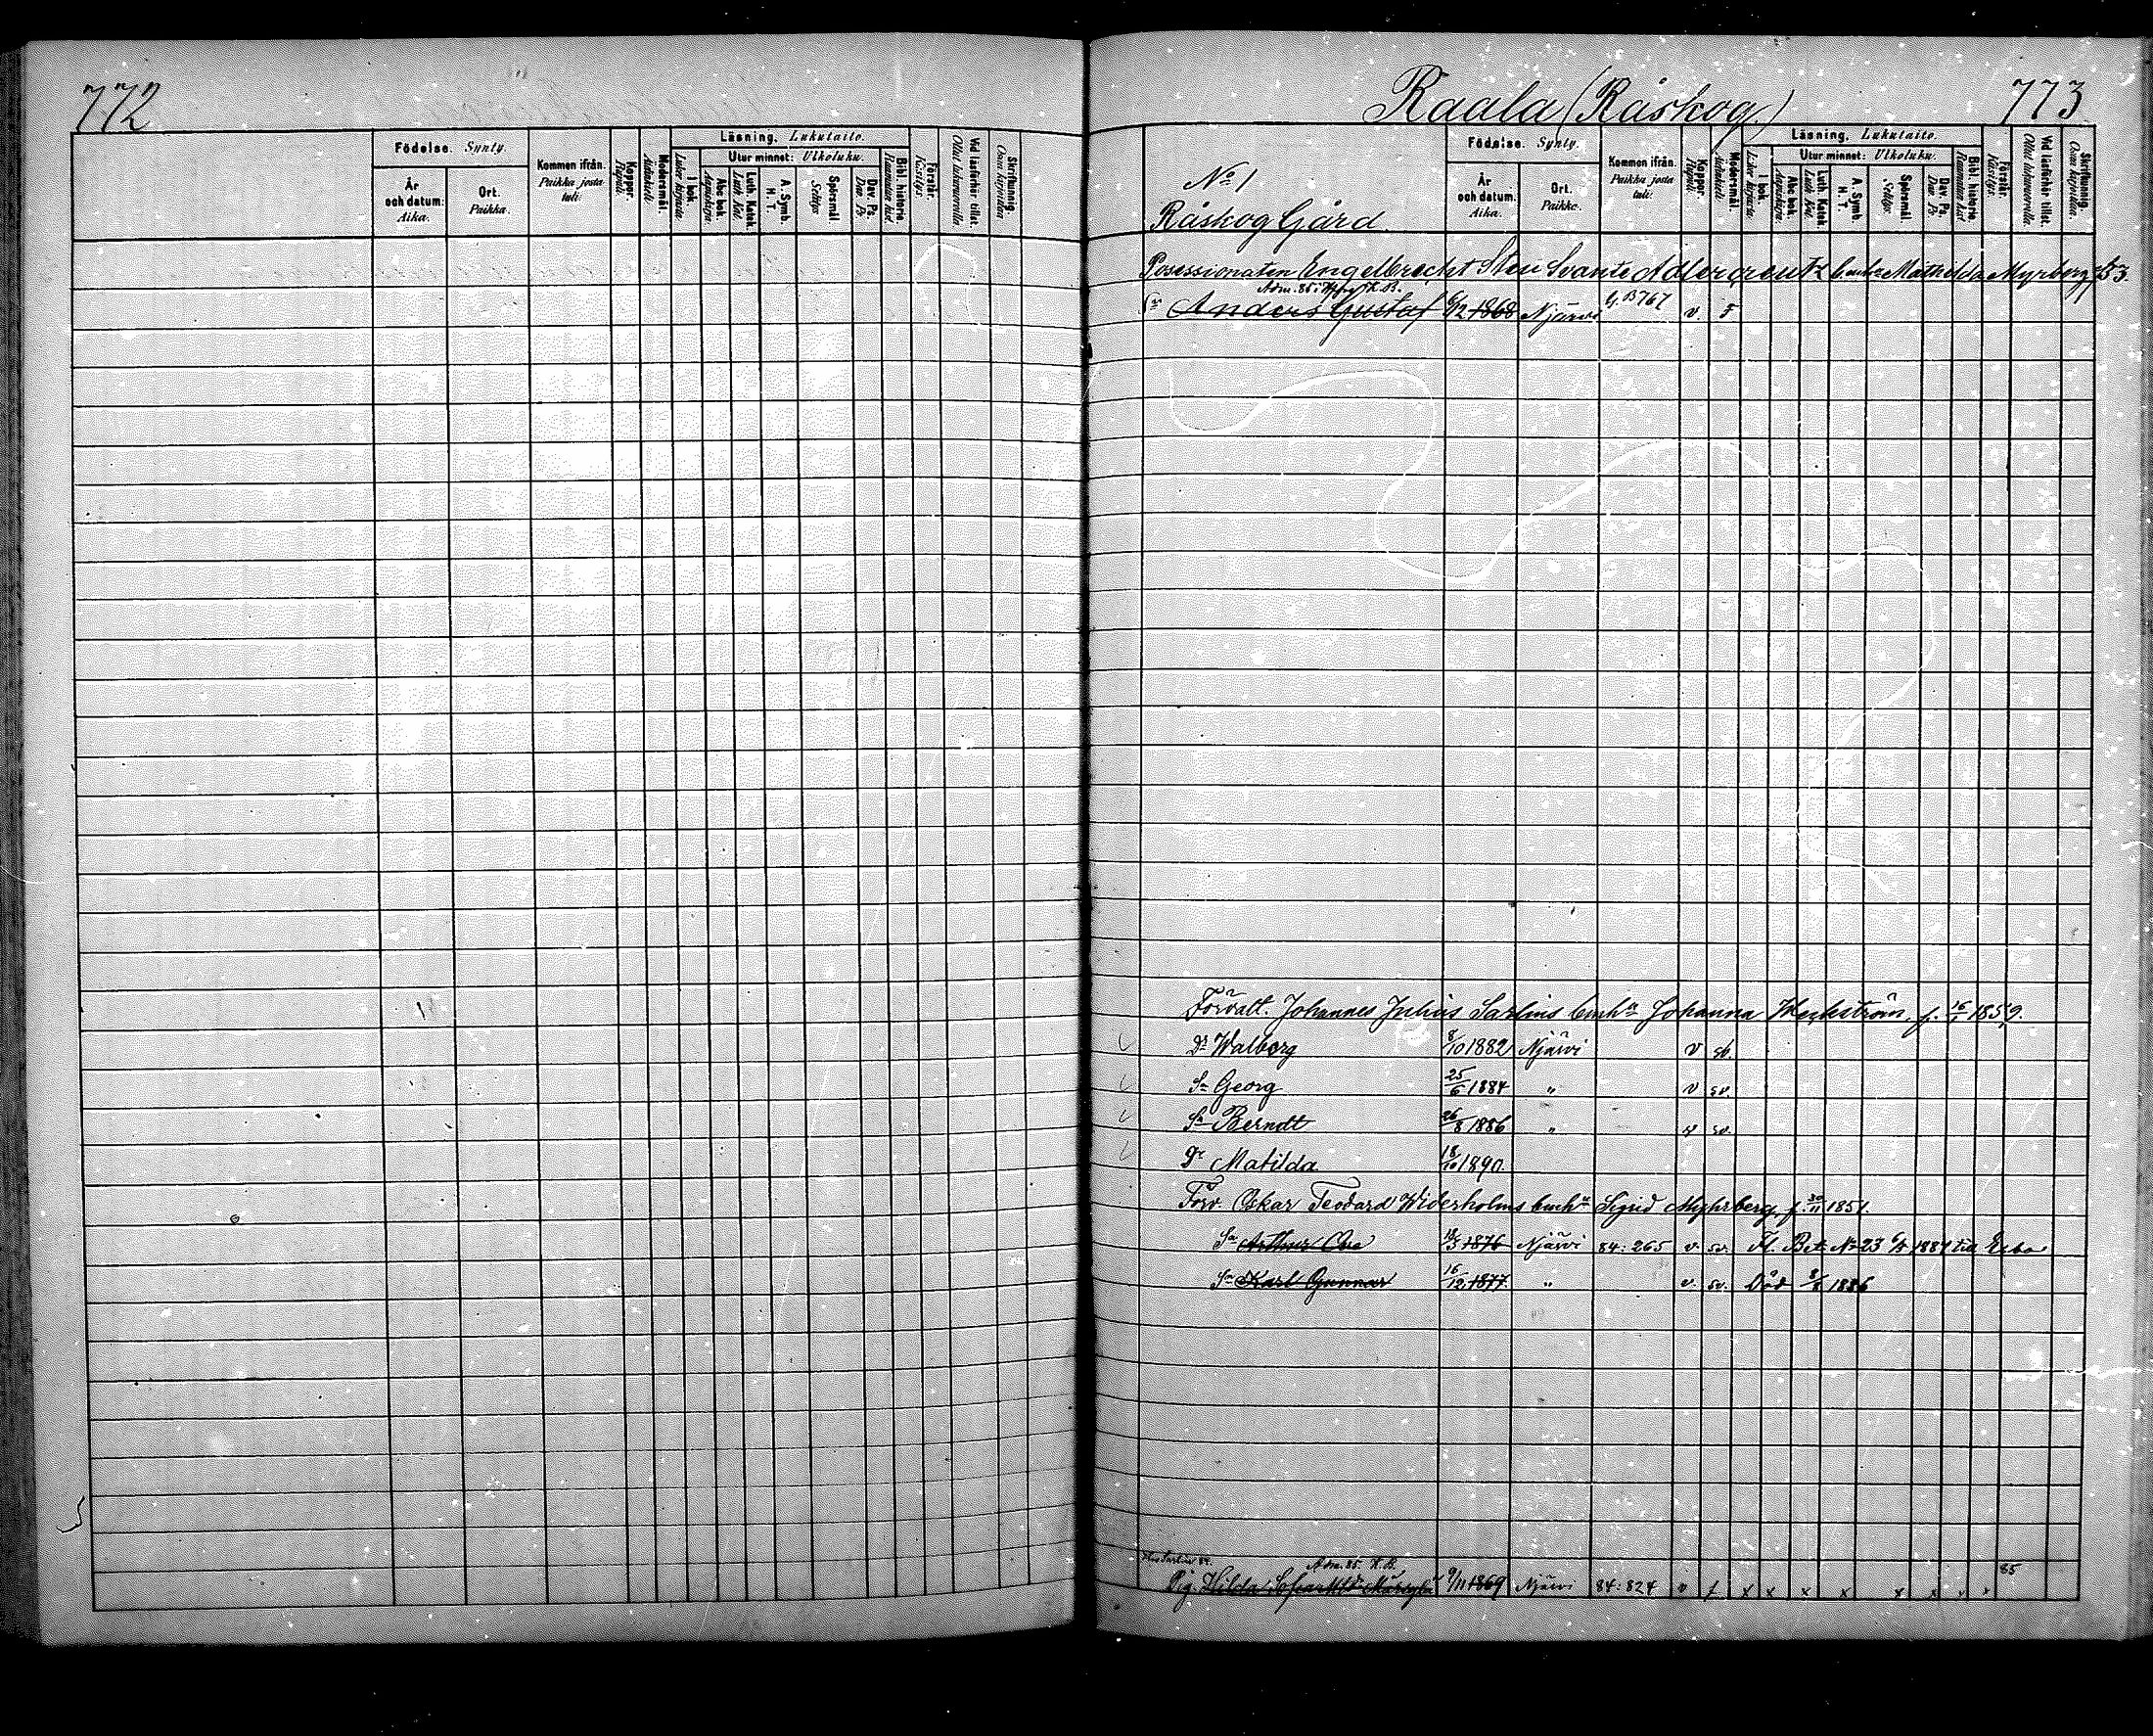 772
Födelse. Synty.
Kommen ifrån. Paikka josta tuli.
Koppor. Rupuli.
Modersmål. Äidinkieli.
Läsning. Lukutaito.
Utur minnet: Ulkoluku.
År och datum: Aika.
Ort. Paikka.
I bok.
Abc bok. Aapiskirja.
Luth. Katek. Luth. Kat.
A. Symb. H. T.
Spörsmål. Selitys
Dav. Ps. Dav. Ps
Bibl. historia. Raamatun hist.
Förstår. Käsitys.
Vid läsförhör tillst.
Skrifkunnig. Osaa kirjoittaa
Raala (Råskog)
773
Födelse. Synty.
Kommen ifrån. Paikka josta tuli.
Koppor. Rupuli.
Modersmål. Äidinkieli.
Läsning. Lukutaito.
Utur minnet: Ulkoluku.
År och datum: Aika.
Ort. Paikka.
I bok.
Abc bok. Aapiskirja.
Luth. Katek. Luth. Kat.
A. Symb H. T.
Spörsmål. Selitys
Dav. Ps. Dav. Ps
Bibl. historia. Raamatun hist.
Förstår. Käsitys.
Vid läsförhör tillst.
Skrifkunnig. Osaa kirjoittaa
No 1
Råskog Gård.
Posessionaten Engelbrecht Sten Svante Adlercreutz Mathilda Myrberg 53.
Adm. 85 K. B.
Sn Anders Gustaf 6/12 1868 Njärvi 767 v. F
Förvalt. Johannes Julius Sarlins Johanna f. 16/1 1859.
Dr Walborg 8/10 1882 Njärvi v sv.
Sn Georg 25/6 1884 " v sv.
Sn Berndt 26/8 1886 " v sv.
Dr Matilda 18/10 1890.
Förv. Oskar Teodard Widerholms Sigrid Myhrberg, f. 30/11 1851.
Sn Arthur 1876 Njärvi 84:265 v. sv. Fl. Bet. No 23 1884 till Esbo
Sn Karl Gunnar 16/12 1877 " v. sv. Död 8/8 1886
Hos Sarlin 84. Adm. 85 K. B. 85
Pig. Hilda Sofia 9/11 1869 Njärvi 84:824 v f x x x x x x x x